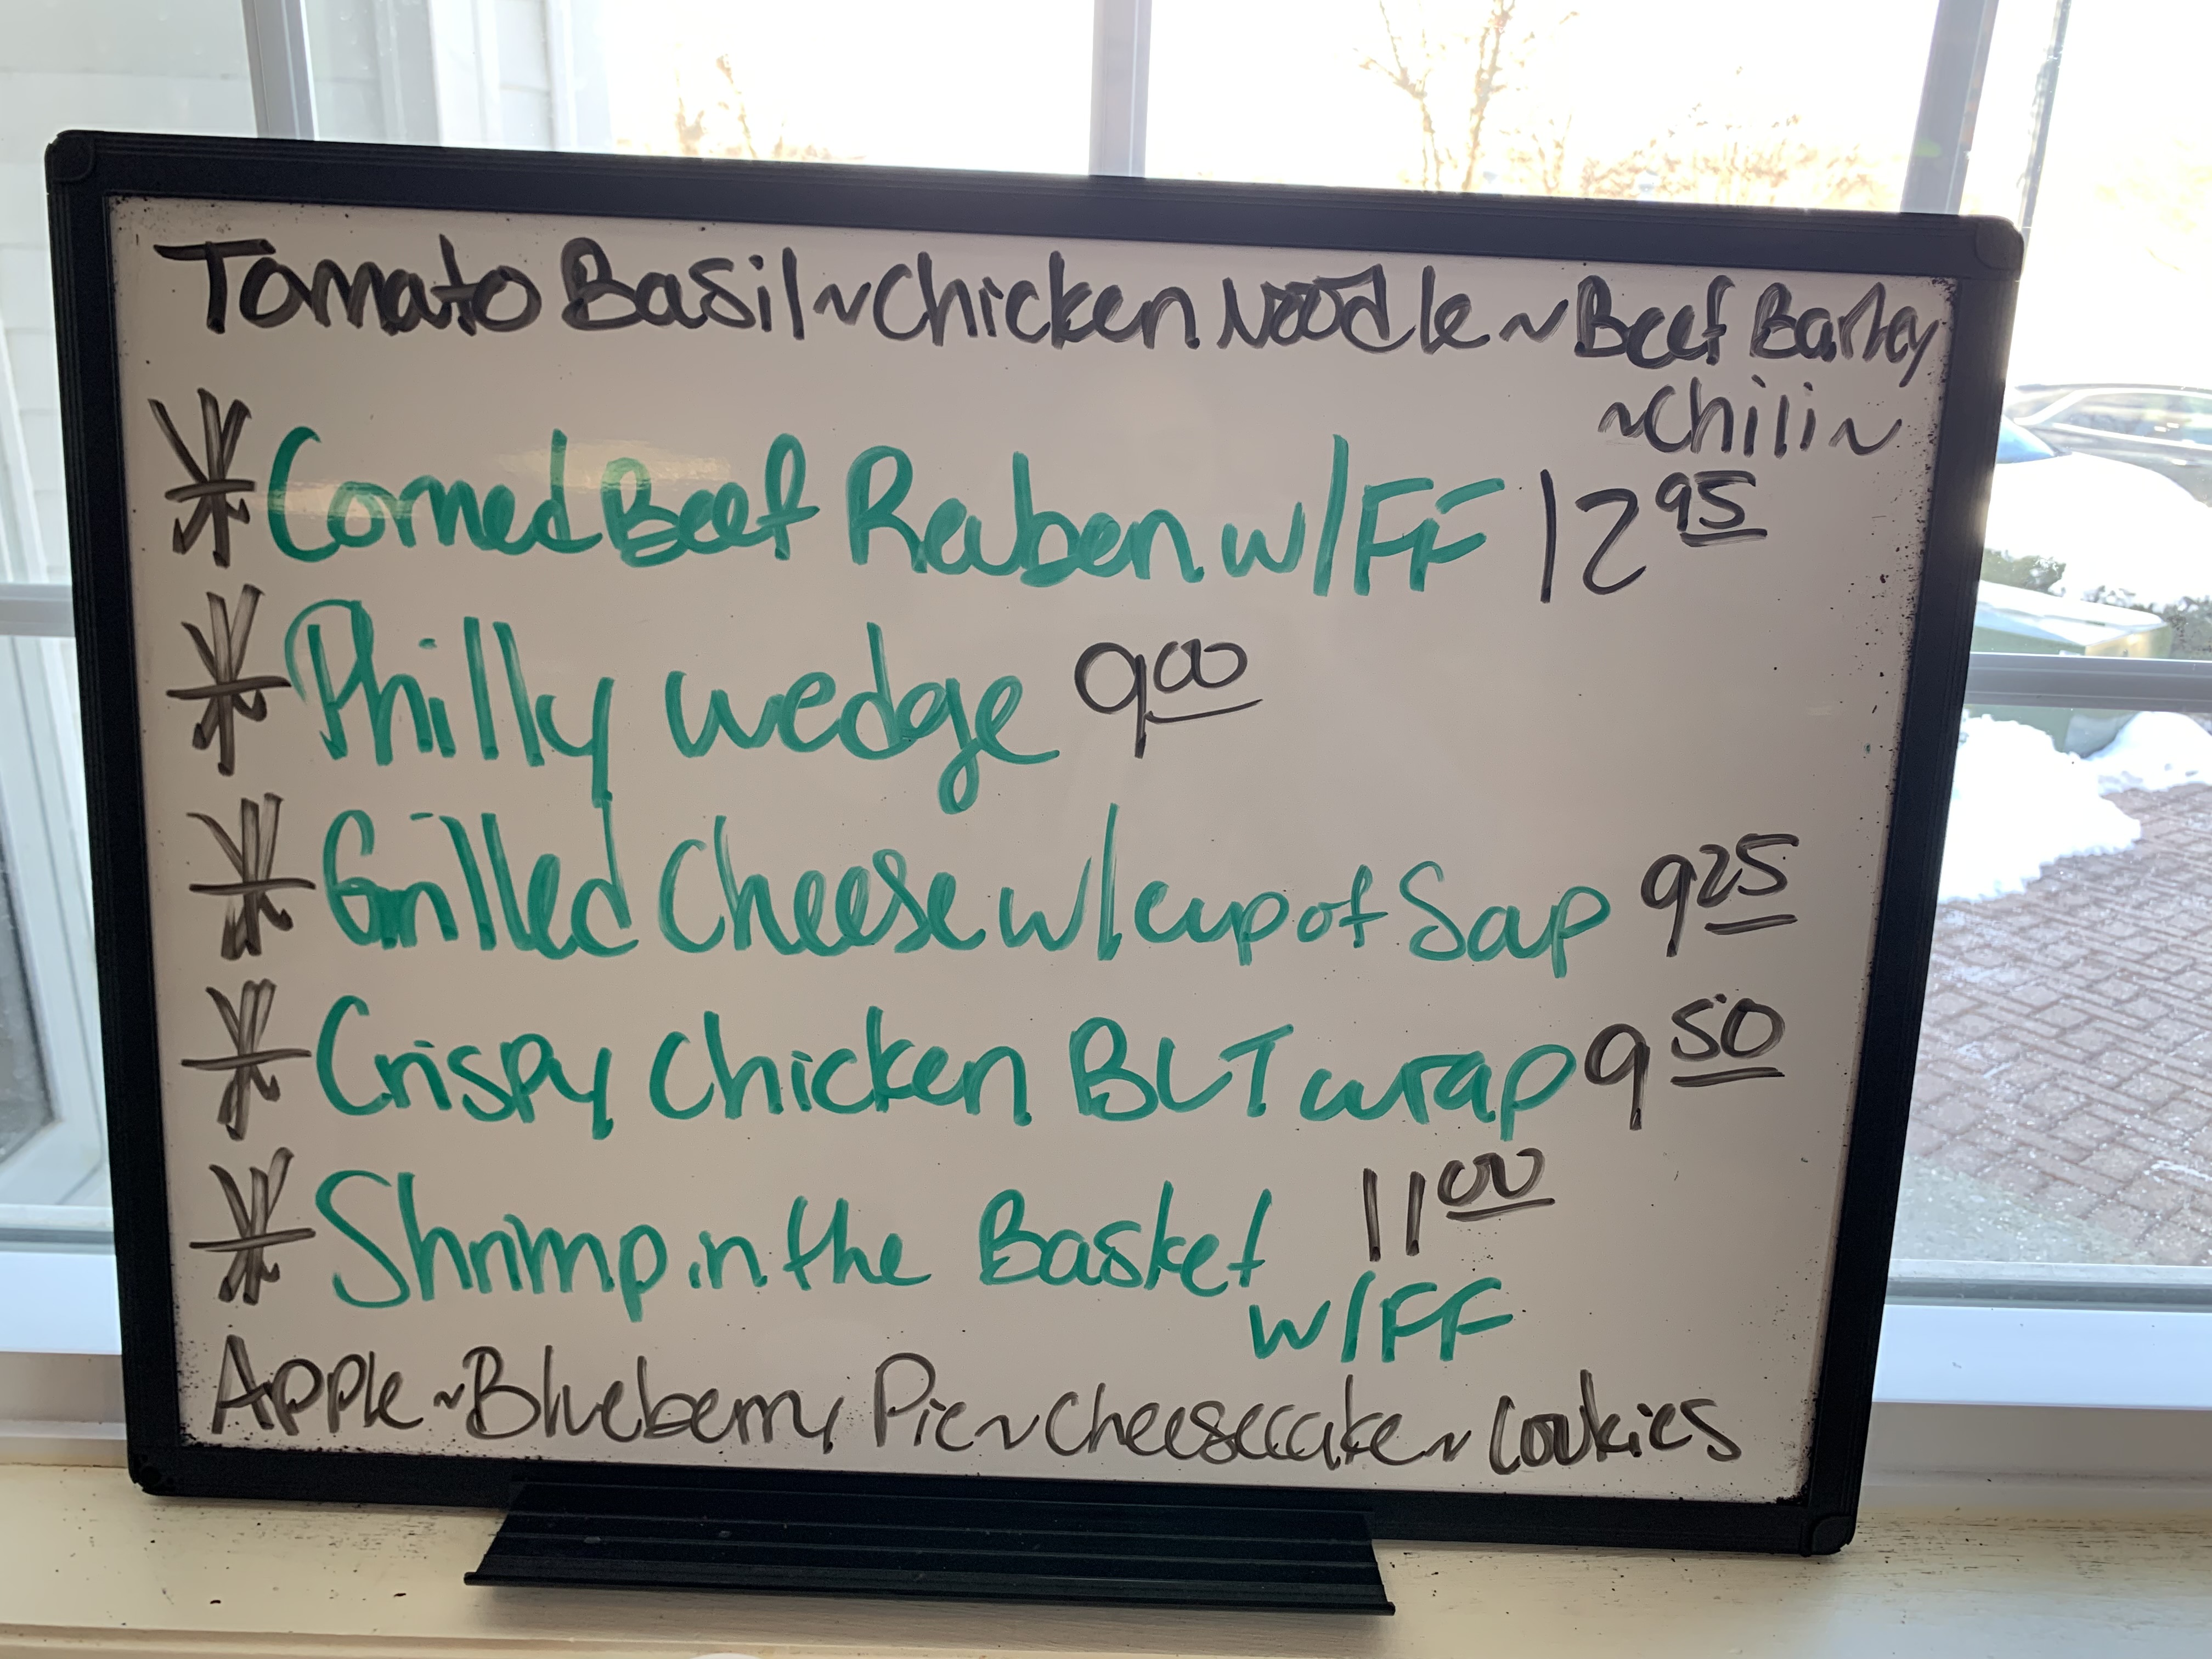 Tomato Basil ~ Chicken Noodle ~ Beef Barley
~ Chili ~
* Corned Beef Reuben w/FF 12 95
* Philly Wedge 9 00
* Grilled Cheese w/ cup of Soup 9 25
* Crispy Chicken BLT wrap 9 50
* Shrimp in the Basket 11 00
w/FF
Apple ~ Blueberry Pie ~ Cheesecake ~ Cookies